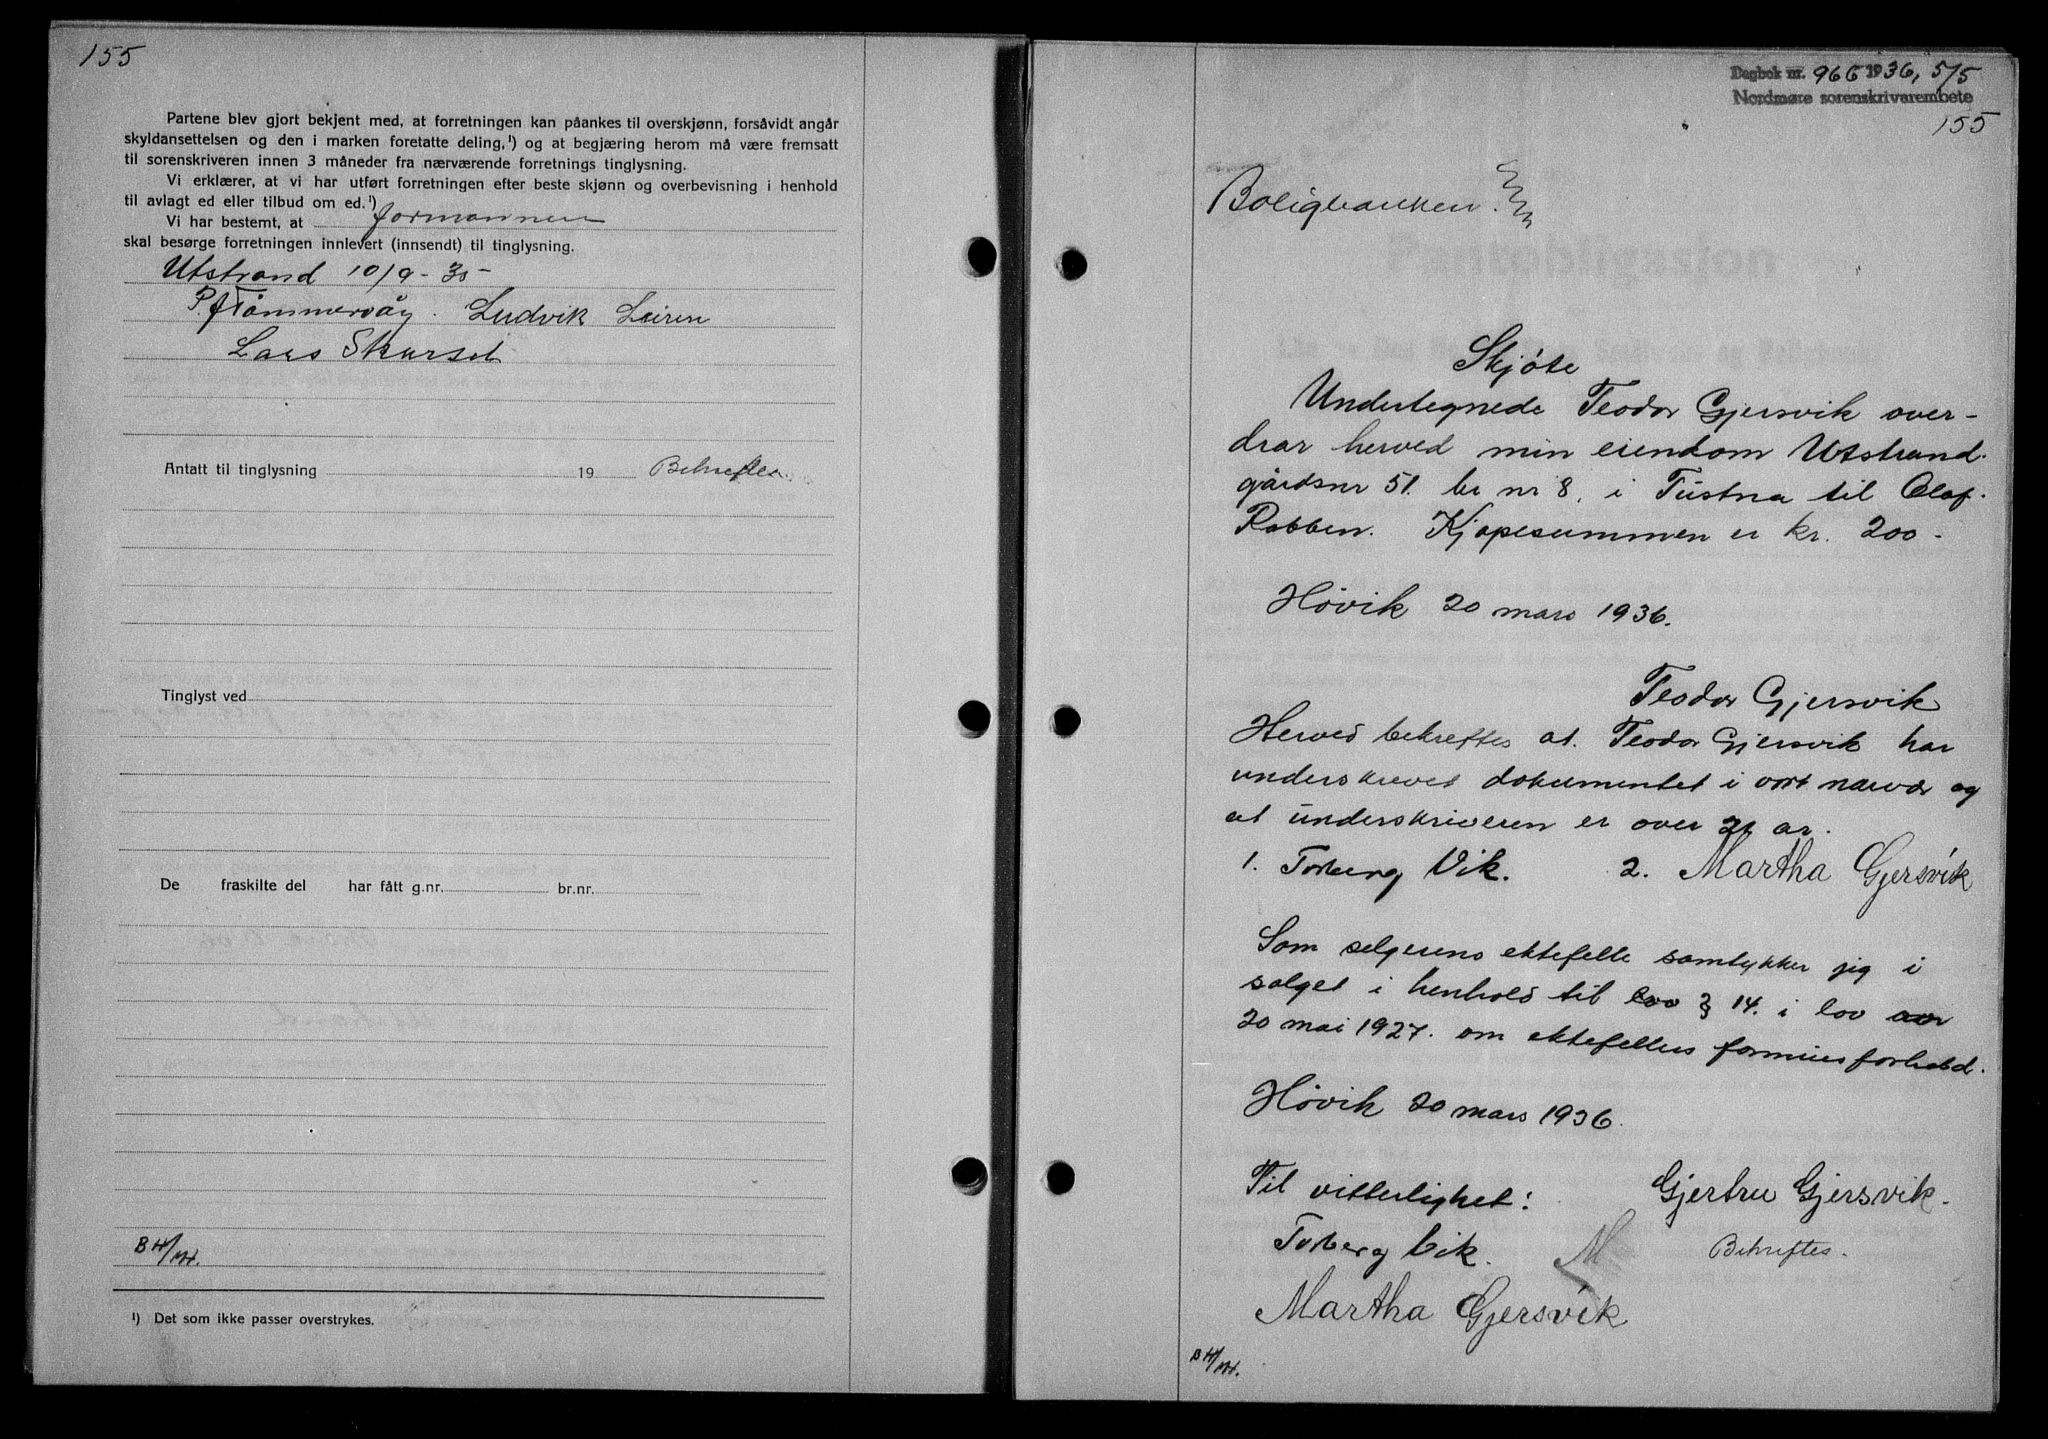 155
Partene blev gjort bekjent med, at forretningen kan påankes til overskjønn, forsåvidt angår
skyldansettelsen og den i marken foretatte deling,¹) og at begjæring herom må være fremsatt
til sorenskriveren innen 3 måneder fra nærværende forretnings tinglysning.
Vi erklærer, at vi har utført forretningen efter beste skjønn og overbevisning i henhold
til avlagt ed eller tilbud om ed.¹)
Vi har bestemt, at formannen
skal besørge forretningen innlevert (innsendt) til tinglysning.
Utstrand 10/9-35
P. J. Tømmervåg. Ludvik Leiren
Lars Skarset
Antatt til tinglysning 19 Behreftes
Tinglyst ved
De fraskilte del har fått g.nr. br.nr.
BH/MH.
¹) Det som ikke passer overstrykes.
Dagbok nr. 966 1936, 5/5
Nordmøre sorenskriverembete
155
Boligbanken.
Skjøte
Undertegnede Teodor Gjersvik over-
drar herved min eiendom Utstrand.
gårdsnr 51. br nr 8, i Tustna til Olaf.
Robben. Kjøpesummen er kr. 200-
Høvik 20 mars 1936.
Teodor Gjersvik
Herved bekreftes at. Teodor Gjersvik har
underskrevet dokumentet i vort nærvær og
at underskriveren er over 21 år.
1. Torberg Vik. 2. Martha Gjersvik
Som selgerens ektefelle samtykker jeg i
salget i henhold til lov § 14. i lov av
20 mai 1927. om ektefellers formuesforhold.
Høvik 20 mars 1936.
Til vitterlighet: Gjertru Gjersvik.
Torberg Vik. Behreftes.
Martha Gjersvik
BH/MH.